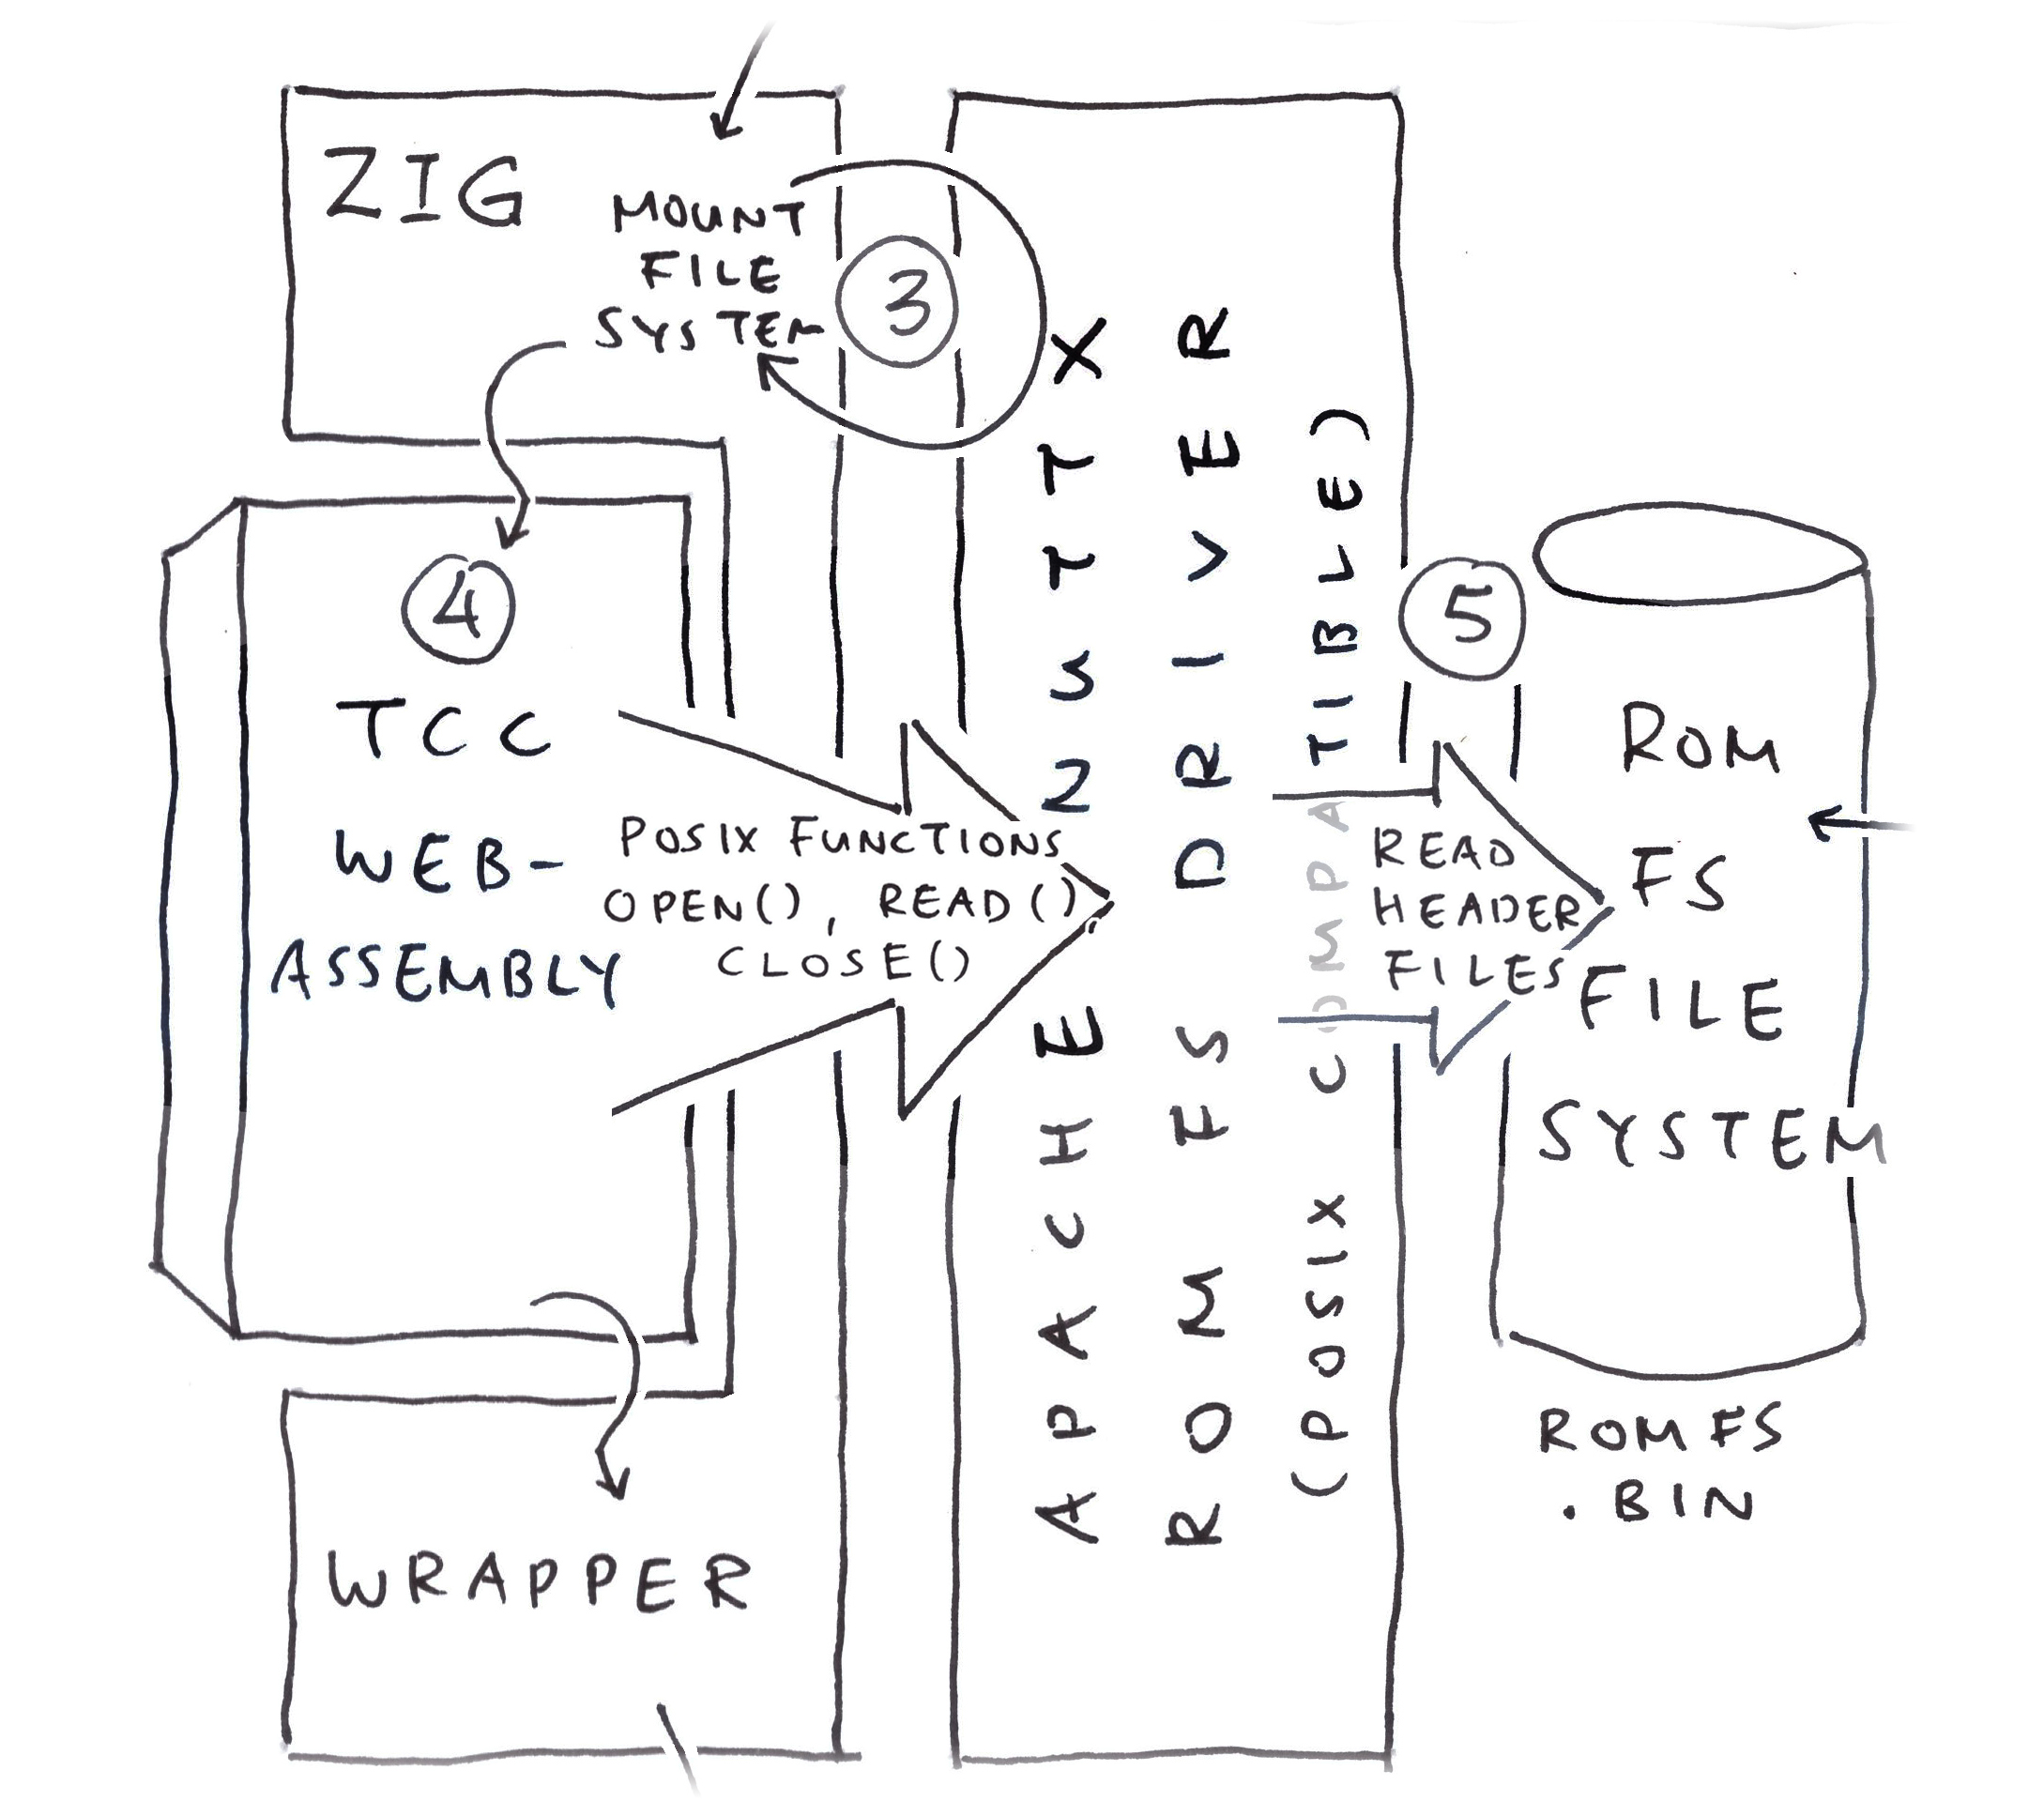 ZIG
MOUNT
FILE
SYSTEM
3
4
TCC
WEB-
ASSEMBLY
POSIX FUNCTIONS
OPEN(), READ()
CLOSE()
WRAPPER
APACHE NUTTX
ROM FS DRIVER
(POSIX COMPATIBLE)
5
READ
HEADER
FILES
ROM
FS
FILE
SYSTEM
ROMFS
.BIN